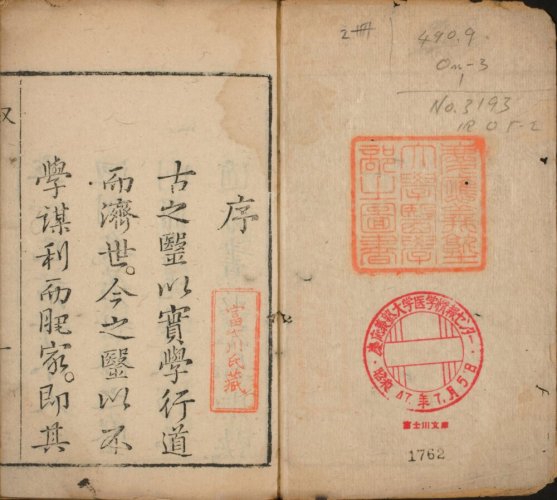 2冊
490.9
On-3
1
No.3193
慶應義塾
大學醫學
部之圖書
慶應義塾大学医学情報センター
昭和 47.年7.月5日
富士川文庫
1762
序
富士川氏藏
古之毉以實學行道
而濟世。今之毉以不
學謀利而肥家。即其